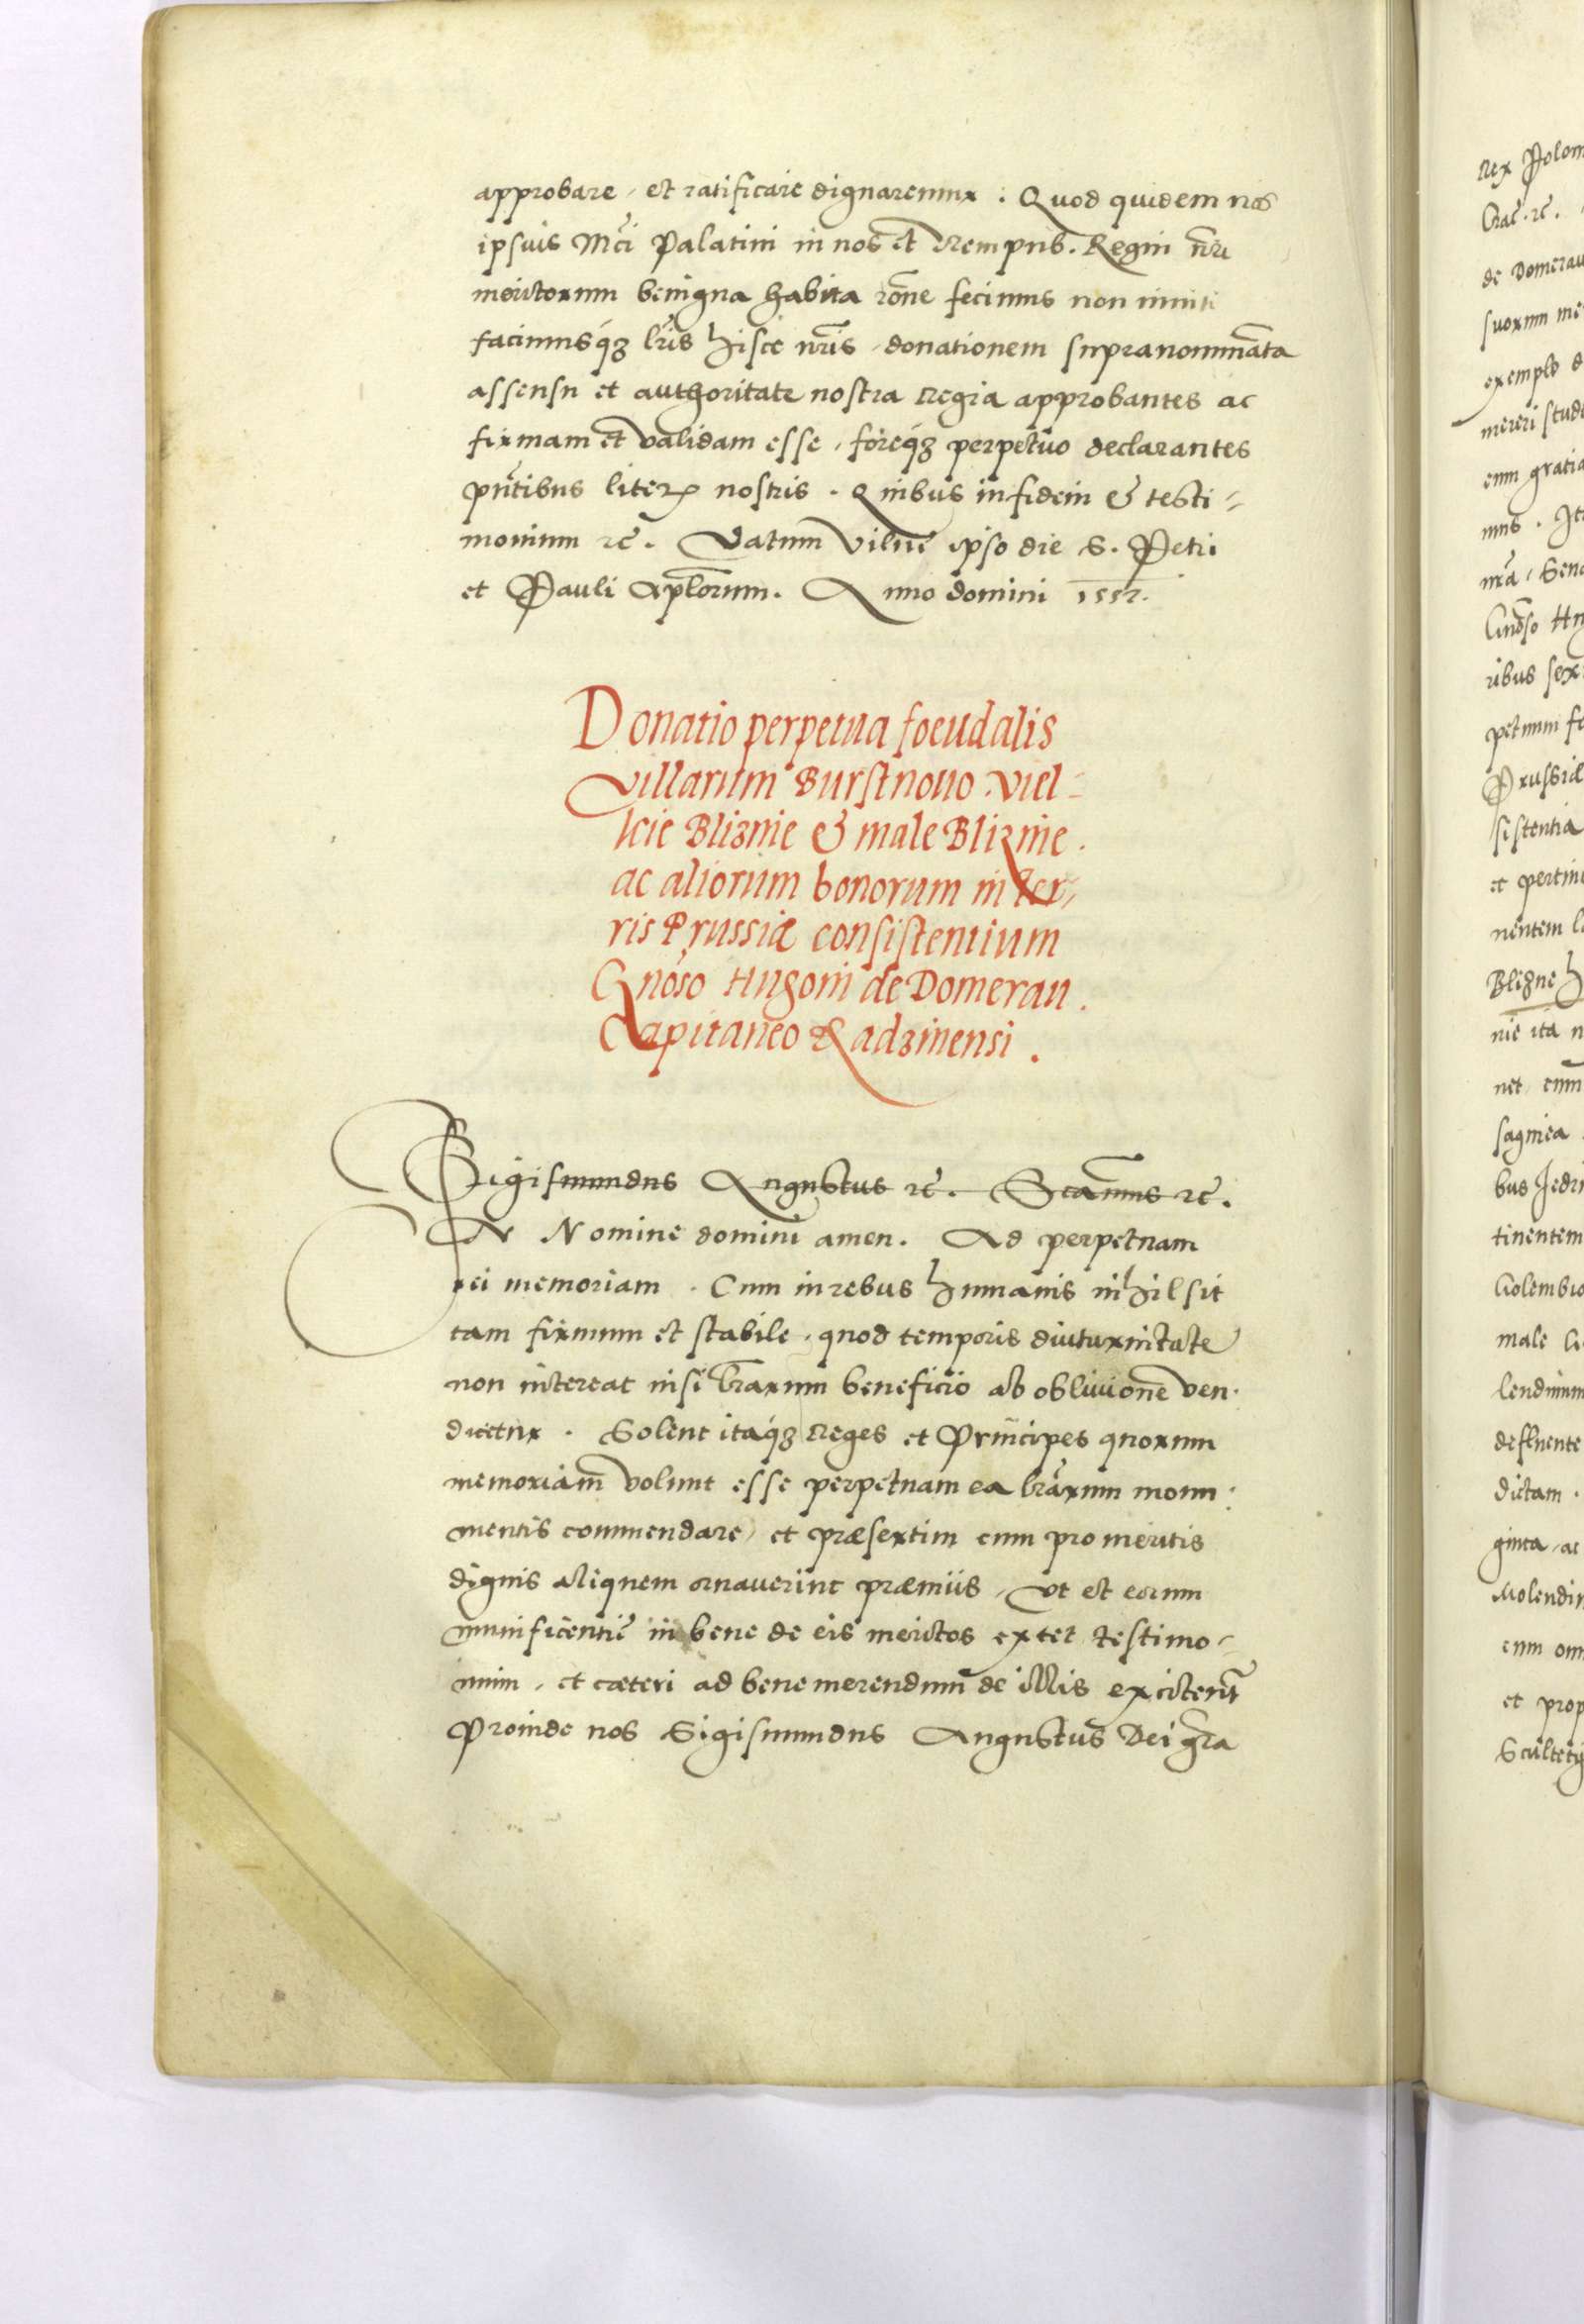 approbare, et ratificare dignaremur. Quod quidem nos
ipsius Mci Palatini in nos et Rempub. Regni nri
meritorum benigna habita rone fecimus non inviti
facimusq́ꝫ lris hisce nris, donationem supranominata
assensu et authoritate nostra regia approbantes ac
firmam et validam esse, foreq́ꝫ perpetuo declarantes
pntibus literꝭ nostris. Quibus in fidem & testi-
monium ꝛc. Datum Vilnę ipso die S. Petri
et Pauli Aplorum. Anno domini
Donatio perpetua foeudalis
villarum Burstnouo, viel-
kie Bliznie & male Bliznie.
ac aliorum bonorum in ter-
ris Prussiæ consistentium
Gnoso Hugoni de Domerau.
Capitaneo Radzinensi.
Sigismundus Augustus ꝛc. ꝛc.
N Nomine domini amen. Ad perpetuam
rei memoriam. Cum in rebus humanis nihil sit
tam firmum et stabile, quod temporis diuturnitate
non intereat nisi lrarum beneficio ab oblivione ven-
dicetur. Solent itaq́ꝫ reges et Principes quorum
memoriam volunt esse perpetuam ea lrarum monu-
mentis commendare, et præsertim cum pro meritis
dignis aliquem ornauerint præmiis, Vt et eorum
munificentię in bene de eis meritos extet testimo-
nium, et cæteri ad bene merendum de illis excitent
Proinde nos Sigismundus Augustus Dei gra
Rex Polon
de Domerau
exemplo d
mereri stud
cum gratia
ribus sex
Prussiæ
sistentia
et pertin
nentem
Blizne
nie ita n
tinentem
Golembio
male
defluente
dictam.
ginta, ac
Molendin
cum om
et prop